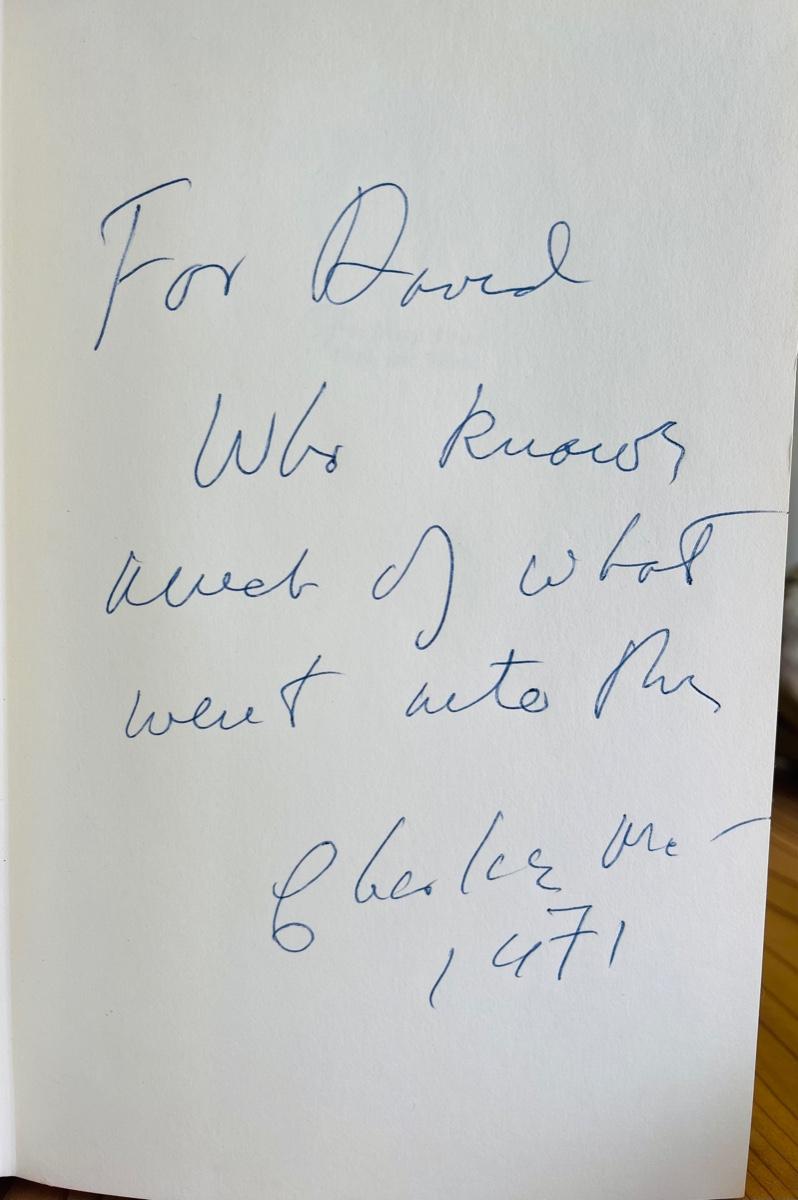 For David
Who knows
much of what
went into this
Charles
1971